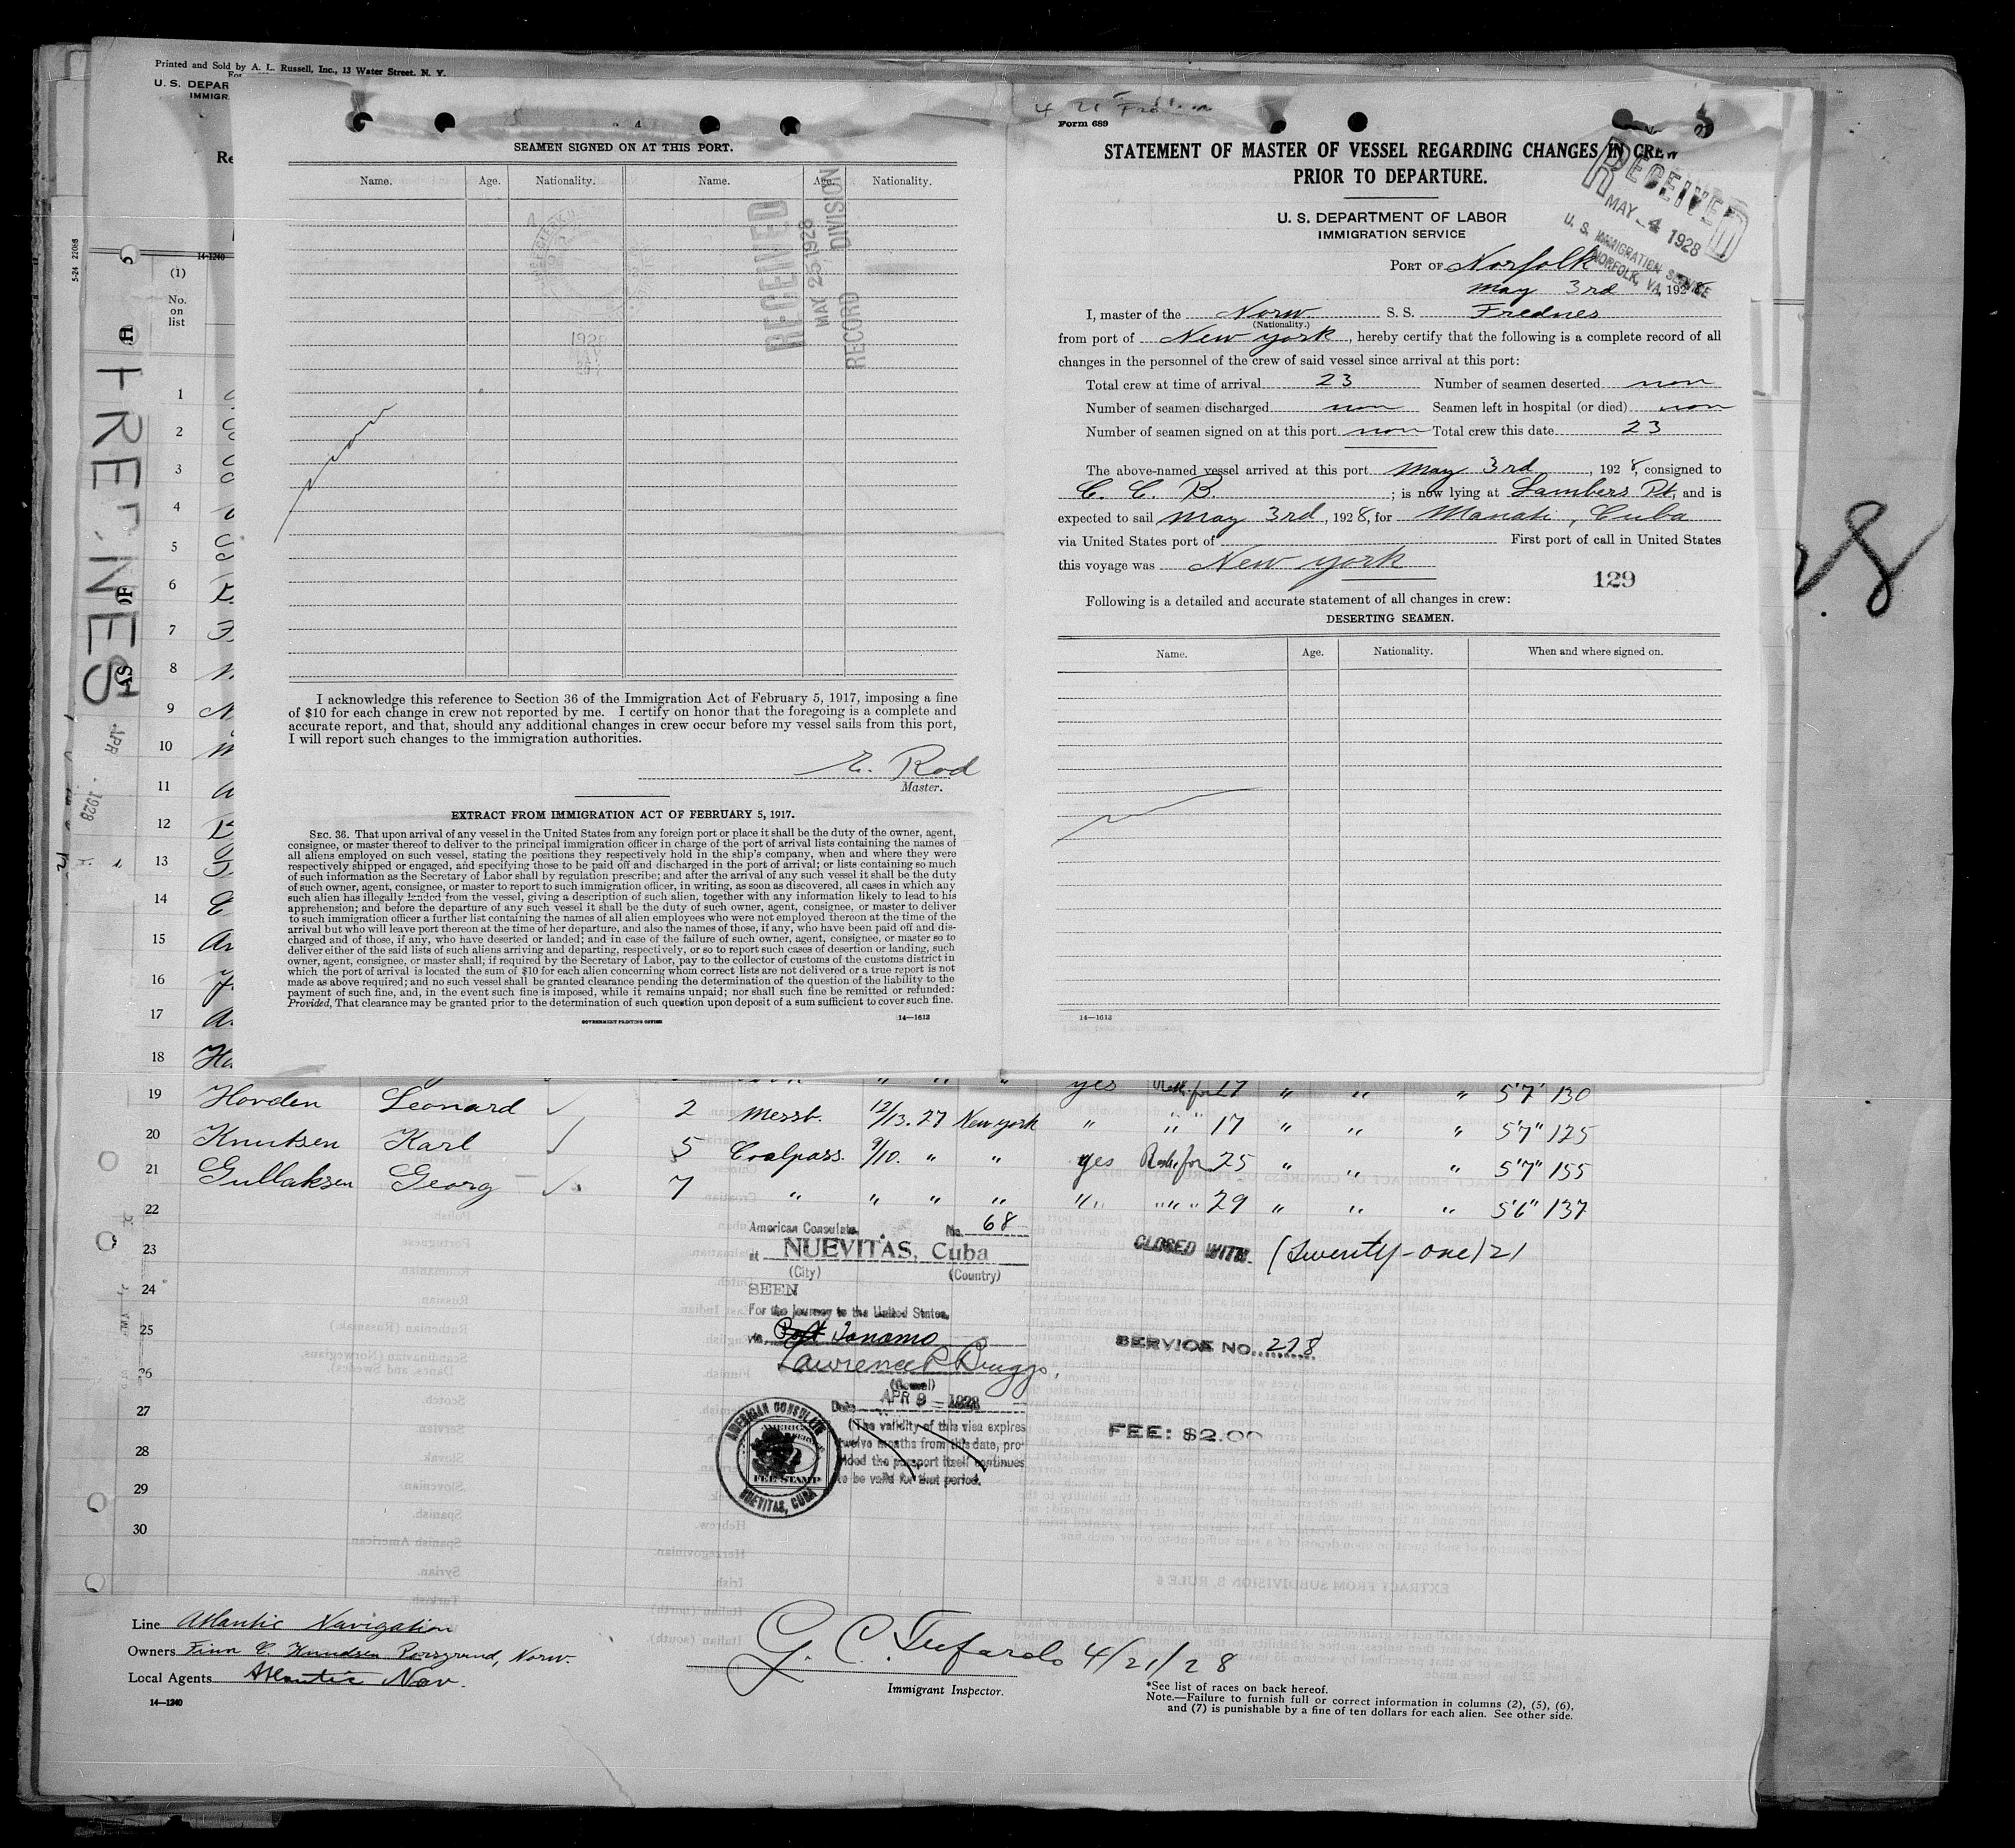 Printed and Sold by A. L. Russell, Inc., 13 Water Street, N. Y.
U. S. DEPAR
IMMIGR
5-24 22088
14-1240
(1)
No.
on
list
1
2
3
4
5
6
7
8
9
10
11
12
13
14
15
16
17
18
APR
1928
SEAMEN SIGNED ON AT THIS PORT.
Name. Age. Nationality. Name. Age. Nationality.
RECEIVED
MAY 25 1928
RECORD DIVISION
1928
non
I acknowledge this reference to Section 36 of the Immigration Act of February 5, 1917, imposing a fine
of $10 for each change in crew not reported by me. I certify on honor that the foregoing is a complete and
accurate report, and that, should any additional changes in crew occur before my vessel sails from this port,
I will report such changes to the immigration authorities.
E. Rod
Master.
EXTRACT FROM IMMIGRATION ACT OF FEBRUARY 5, 1917.
SEC. 36. That upon arrival of any vessel in the United States from any foreign port or place it shall be the duty of the owner, agent,
consignee, or master thereof to deliver to the principal immigration officer in charge of the port of arrival lists containing the names of
all aliens employed on such vessel, stating the positions they respectively hold in the ship's company, when and where they were
respectively shipped or engaged, and specifying those to be paid off and discharged in the port of arrival; or lists containing so much
of such information as the Secretary of Labor shall by regulation prescribe; and after the arrival of any such vessel it shall be the duty
of such owner, agent, consignee, or master to report to such immigration officer, in writing, as soon as discovered, all cases in which any
such alien has illegally landed from the vessel, giving a description of such alien, together with any information likely to lead to his
apprehension; and before the departure of any such vessel it shall be the duty of such owner, agent, consignee, or master to deliver
to such immigration officer a further list containing the names of all alien employees who were not employed thereon at the time of the
arrival but who will leave port thereon at the time of her departure, and also the names of those, if any, who have been paid off and dis-
charged and of those, if any, who have deserted or landed; and in case of the failure of such owner, agent, consignee, or master so to
deliver either of the said lists of such aliens arriving and departing, respectively, or so to report such cases of desertion or landing, such
owner, agent, consignee, or master shall; if required by the Secretary of Labor, pay to the collector of customs of the customs district in
which the port of arrival is located the sum of $10 for each alien concerning whom correct lists are not delivered or a true report is not
made as above required; and no such vessel shall be granted clearance pending the determination of the question of the liability to the
payment of such fine, and, in the event such fine is imposed, while it remains unpaid; nor shall such fine be remitted or refunded:
Provided, That clearance may be granted prior to the determination of such question upon deposit of a sum sufficient to cover such fine.
GOVERNMENT PRINTING OFFICE 14—1613
Form 689
STATEMENT OF MASTER OF VESSEL REGARDING CHANGES IN CREW
PRIOR TO DEPARTURE.
U. S. DEPARTMENT OF LABOR
IMMIGRATION SERVICE
RECEIVED
MAY -4 1928
U. S. IMMIGRATION SERVICE
NORFOLK, VA.
PORT OF Norfolk
May 3rd, 1928
I, master of the Norw S. S. Frednes
(Nationality.)
from port of New york, hereby certify that the following is a complete record of all
changes in the personnel of the crew of said vessel since arrival at this port:
Total crew at time of arrival 23 Number of seamen deserted non
Number of seamen discharged non Seamen left in hospital (or died) non
Number of seamen signed on at this port non Total crew this date 23
The above-named vessel arrived at this port May 3rd, 1928, consigned to
C. C. B. ; is now lying at Lambers Pt, and is
expected to sail May 3rd, 1928, for Manati, Cuba
via United States port of First port of call in United States
this voyage was New york
129
Following is a detailed and accurate statement of all changes in crew:
DESERTING SEAMEN.
Name. Age. Nationality. When and where signed on.
14—1613
28
yes 17 " " " 5'7" 130
19 Hovden Leonard 2 Messb. 12/13.27 New york " " " 17 " " " 5'7" 125
20 Knutsen Karl 5 Coalpass. 9/10. " " yes 25 " " " 5'7" 155
21 Gullaksen Georg 7 " " " " " " " 29 " " " 5'6" 137
22
23
24
25
26
27
28
29
30
American Consulate, No. 68
at NUEVITAS, Cuba
(City) (Country)
SEEN
For the journey to the United States,
via Port Tanamo
Lawrence P. Briggs,
(Consul)
Date APR 9 - 1928
(The validity of this visa expires
twelve months from this date, pro-
vided the passport itself continues
to be valid for that period.
AMERICAN CONSULATE
NUEVITAS, CUBA
FEE STAMP
CLOSED WITH (Twenty-one) 21
SERVICE NO. 278
FEE: $2.00
Line Atlantic Navigation
Owners Finn C. Knudsen Porsgrund, Norw.
Local Agents Atlantic Nav.
14—1240
4/21/28
Immigrant Inspector.
*See list of races on back hereof.
Note.—Failure to furnish full or correct information in columns (2), (5), (6),
and (7) is punishable by a fine of ten dollars for each alien. See other side.